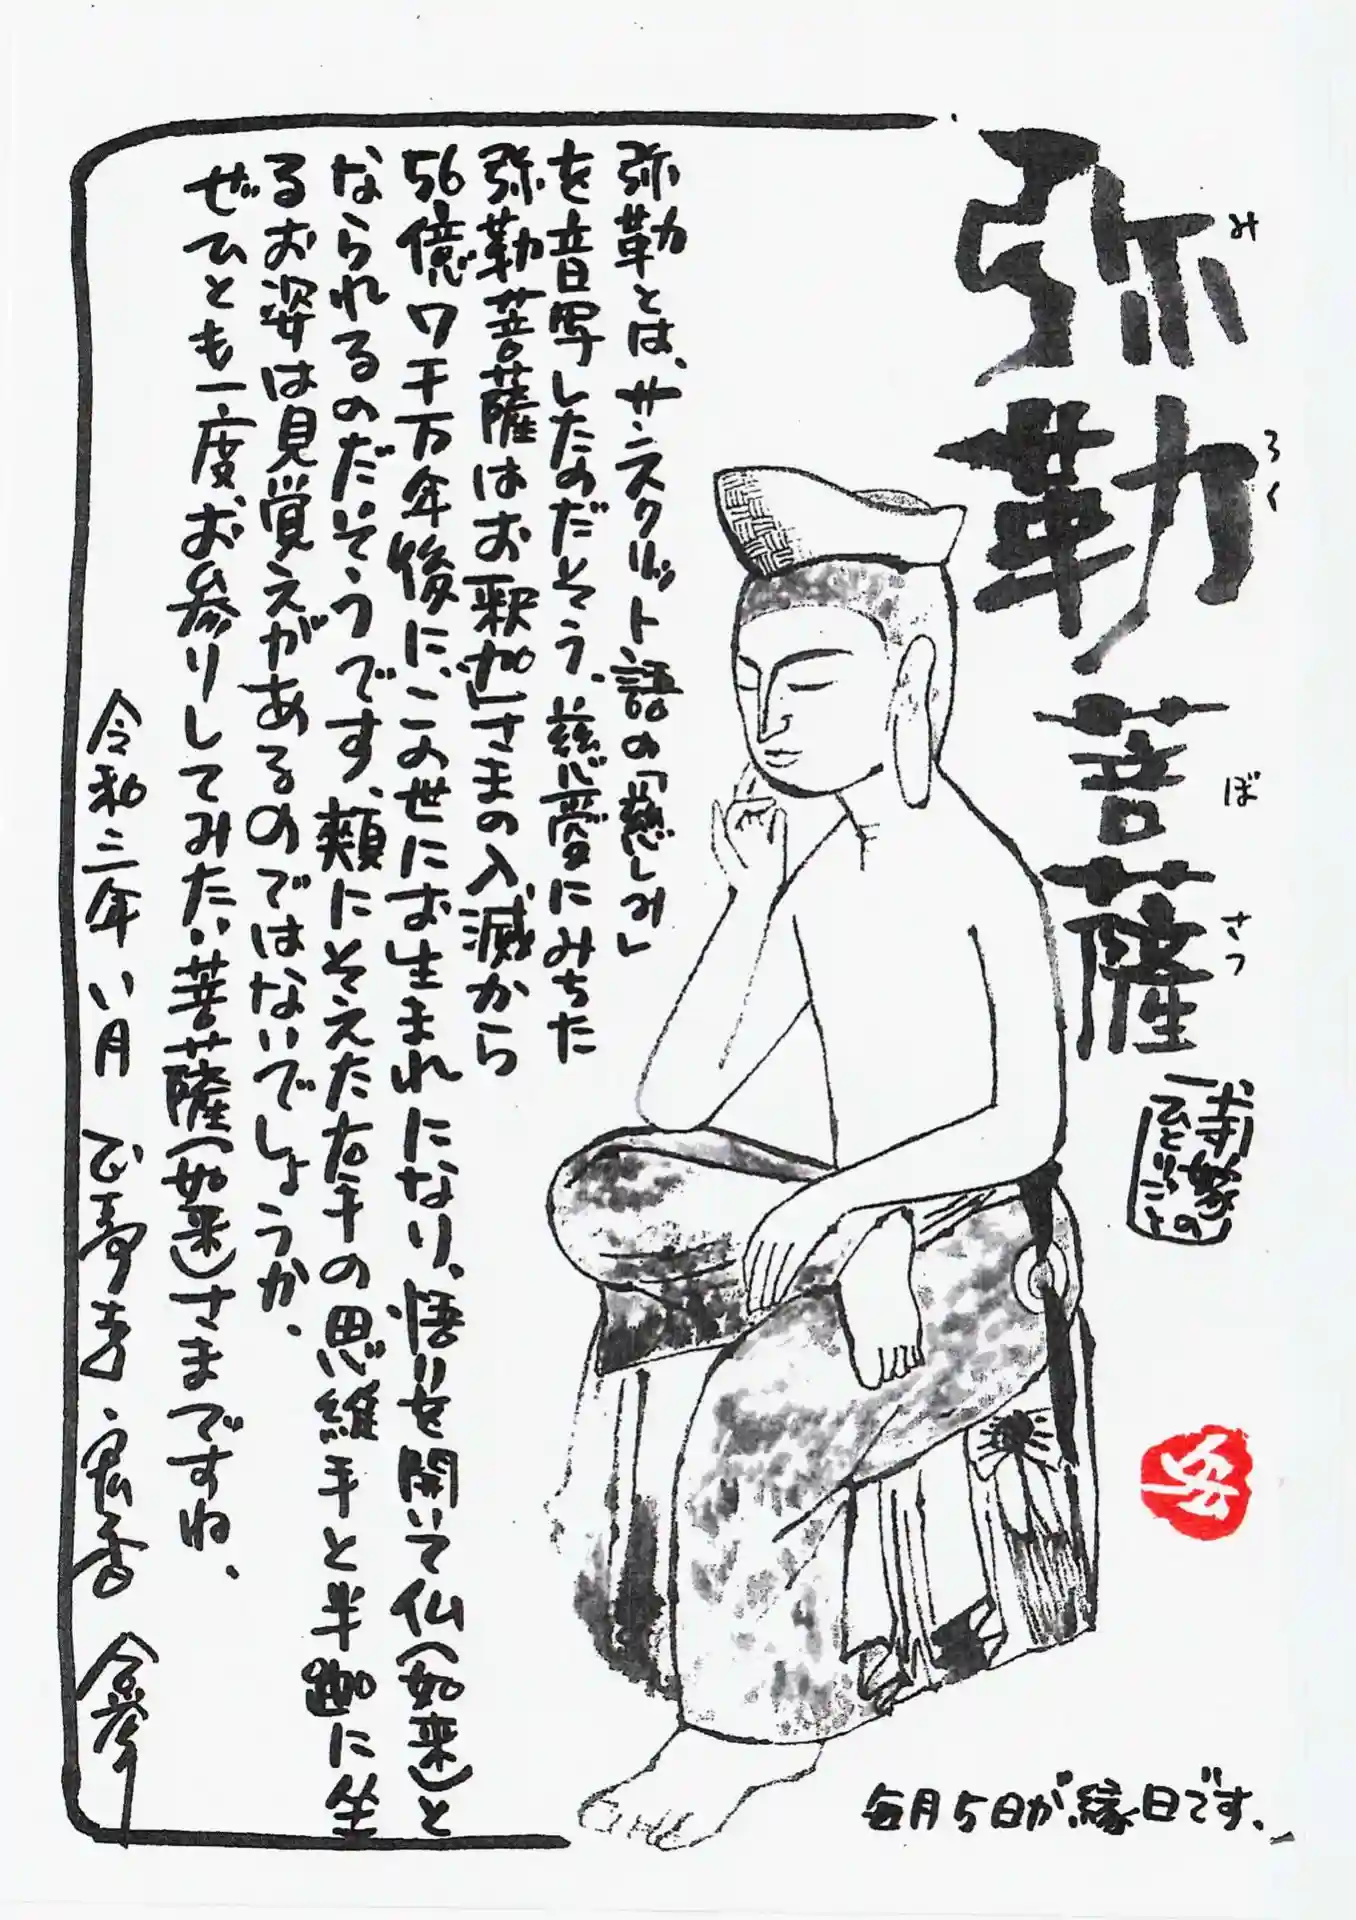 弥勒菩薩
みろくぼさつ
お寺の掾の
ひとりごと
弥勒とは、サンスクリット語の「慈しみ」
を音写したのだそう、慈愛にみちた
弥勒菩薩はお釈迦さまの入滅から
56億7千万年後に、この世にお生まれになり、悟りを開いて仏(如来)と
なられるのだそうです、頬にそえた右手の思維手と半跏に坐
るお姿は見覚えがあるのではないでしょうか、
ぜひとも一度お参りしてみたい菩薩(如来)さまですね、
令和三年
毎月5日が縁日です、